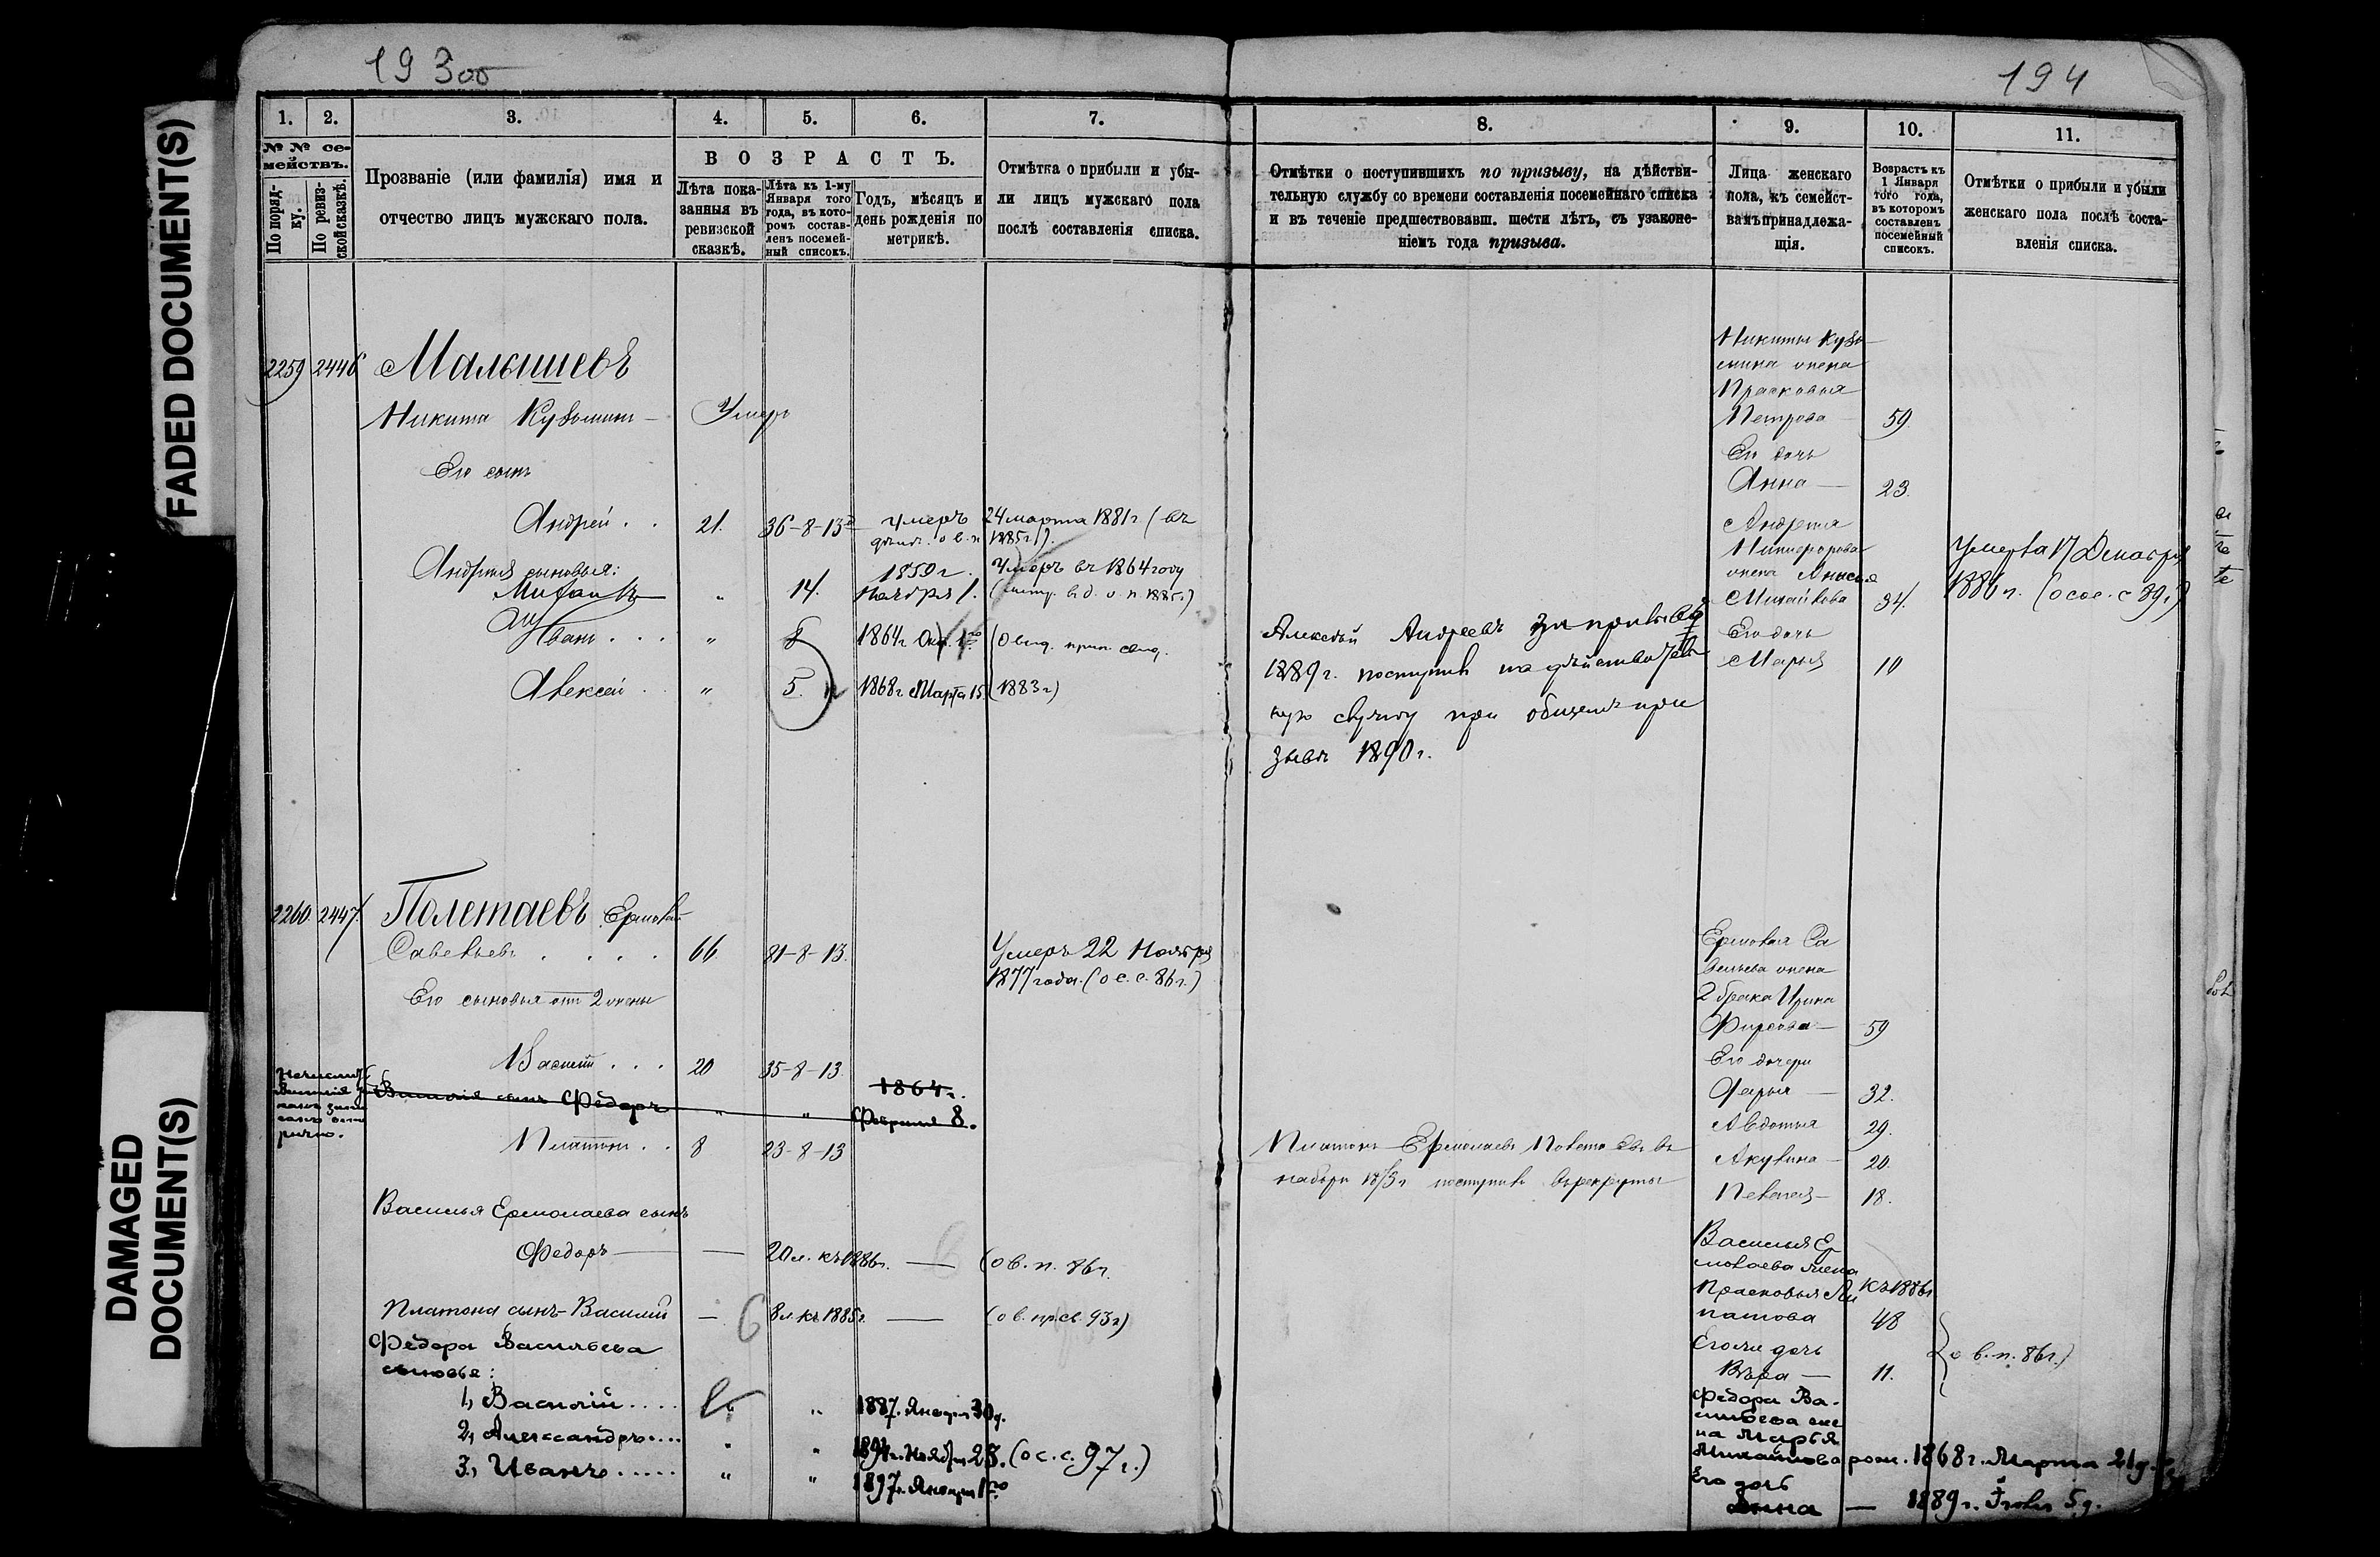 FADED DOCUMENT(S)
DAMAGED
DOCUMENT(S)
193об
1. 2. 3. 4. 5. 6. 7.
№ № се-
мействъ.
По поряд-
ку.
По ревиз-
ской сказкѣ.
Прозваніе (или фамилія) имя и
отчество лицъ мужскаго пола.
В О З Р А С Т Ъ.
Лѣта пока-
занныя въ
ревизской
сказкѣ.
Лѣта къ 1-му
Января того
года, въ кото-
ромъ состав-
ленъ посемей-
ный списокъ.
Годъ, мѣсяцъ и
день рожденія по
метрикѣ.
Отмѣтка о прибыли и убы-
ли лицъ мужскаго пола
послѣ составленія списка.
2259 2446 Малышевъ
Никита Кузьминъ — Умеръ
Его сынъ
Андрей . . 21. 36-8-13 Умеръ 24 марта 1881 г (въ
1885 г.)
Андрея сыновья:
Михаилъ „ 14. 1859 г. Ноября 1. Умеръ въ 1864 году
Иванъ . . . „ 8 1864 г.
Алексей . . „ 5. 1868 г. Марта 15. (1883 г)
2260. 2447. Полетаевъ Ермолай
Савельевъ . . . . 66. 81-8-13. Умеръ 22 Ноября
1877 года. (о с. с. 86 г.)
Его сыновья отъ 2 жены
Василий . . . 20 35-8-13.
Василія сынъ Федоръ „ „ 1864 г.
Февраля 8.
Платонъ . . 8 23-8-13
Василья Ермолаева сынъ
Федоръ — — 20 л. къ 1886 г. — (о в. п. 86 г.
Платона сынъ Василий — 8 л. къ 1885 г. — (о в. пр. св. 93 г)
Федора Васильева
сыновья:
1, Василій.... „ 1887 г. Января 30 д.
2, Александръ.... „ „ 1894 г. Ноября 23. (о с. с. 97 г.)
3, Иванъ ..... „ „ 1897 г. Января 1го
194
8. 9. 10. 11.
Отмѣтки о поступившихъ по призыву, на дѣйстви-
тельную службу со времени составленія посемейнаго списка
и въ теченіе предшествовавш. шести лѣтъ, съ узаконе-
ніемъ года призыва.
Лица женскаго
пола, къ семейст-
вамъ принадлежа-
щія.
Возрастъ къ
1 Января
того года,
въ которомъ
составленъ
посемейный
списокъ.
Отмѣтки о прибыли и убыли
женскаго пола послѣ соста-
вленія списка.
Никиты Кузь-
мина жена
Прасковья
Петрова 59.
Его дочь
Анна — 23.
Андрея
Никифорова
жена
Михайлова 34. Умерла 17 Декабря
1886 г. (о сос. с 89 г)
Его дочь
Марья 10
Алексѣй Андреевъ
1889 г. поступилъ на дѣйствитель
ную службу при общемъ при
зывѣ 1890 г.
Ермолая Са
вельева жена
2 брака Ирина
Фирсова — 59
Его дочери
Дарья — 32.
Авдотья 29.
Акулина — 20.
Пелагея — 18.
Платонъ Ермолаевъ Полетаевъ въ
наборъ 1873 г поступилъ въ рекруты
Василья Ер
молаева жена
Прасковья Ли къ 1886 г
патова 48
Его же дочь
Вѣра — 11. (о в. п. 86 г.)
Федора Ва-
сильева же
на Марья
Михайлова рож. 1868 г. Марта 21 д.
Его дочь
Анна — 1889 г. Іюля 5 д.